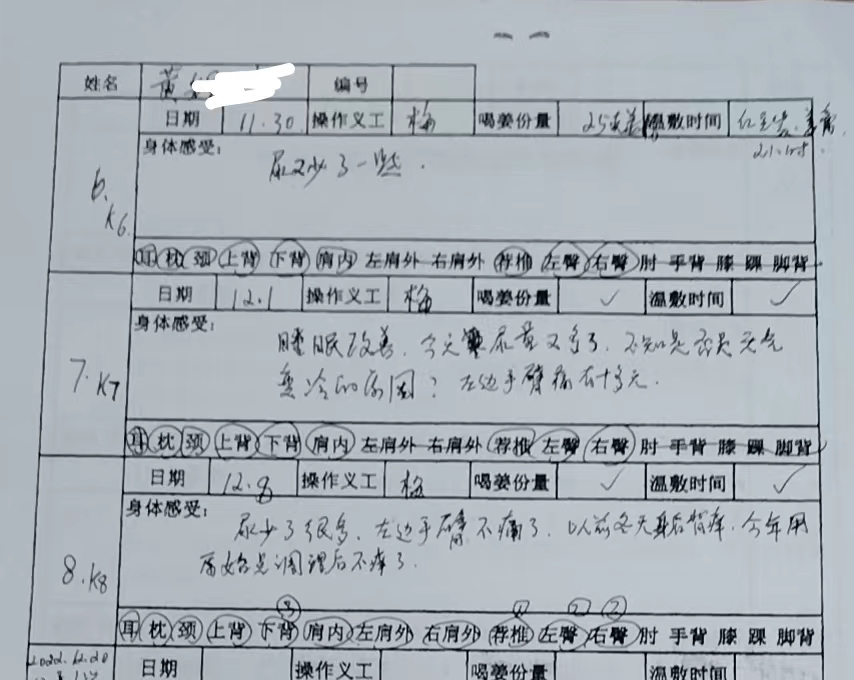 姓名 黄 编号
6. K6. 日期 11.30 操作义工 梅 喝姜份量 温敷时间
21.45
身体感受:
尿又少了一些.
耳 枕 颈 上背 下背 肩内 左肩外 右肩外 荐椎 左臀 右臀 肘 手背 膝 踝 脚背
7. K7 日期 12.1 操作义工 梅 喝姜份量 ✓ 温敷时间 ✓
身体感受:
睡眠改善, 今天 尿量又多了, 不知是否是天气
冷的原因? 左边手臂痛有十多天.
耳 枕 颈 上背 下背 肩内 左肩外 右肩外 荐椎 左臀 右臀 肘 手背 膝 踝 脚背
8. K8 日期 12.8 操作义工 梅 喝姜份量 ✓ 温敷时间 ✓
身体感受:
尿少了很多, 左边手臂不痛了, 以前冬天 背痒, 今年用
原始点调理后不痒了.
③ ① ② ②
耳 枕 颈 上背 下背 肩内 左肩外 右肩外 荐椎 左臀 右臀 肘 手背 膝 踝 脚背
2022.12.20 日期 操作义工 喝姜份量 温敷时间